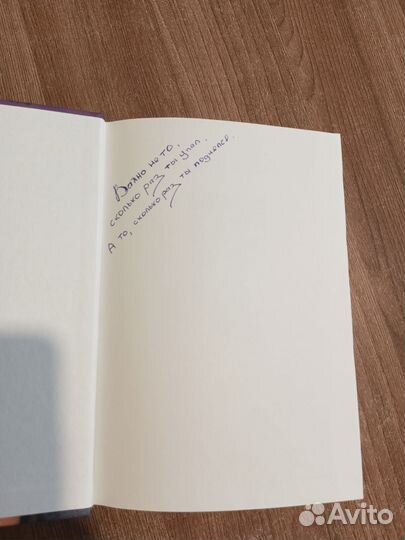 Важно не то,
сколько раз ты упал.
А то, сколько раз ты поднялся.
Avito